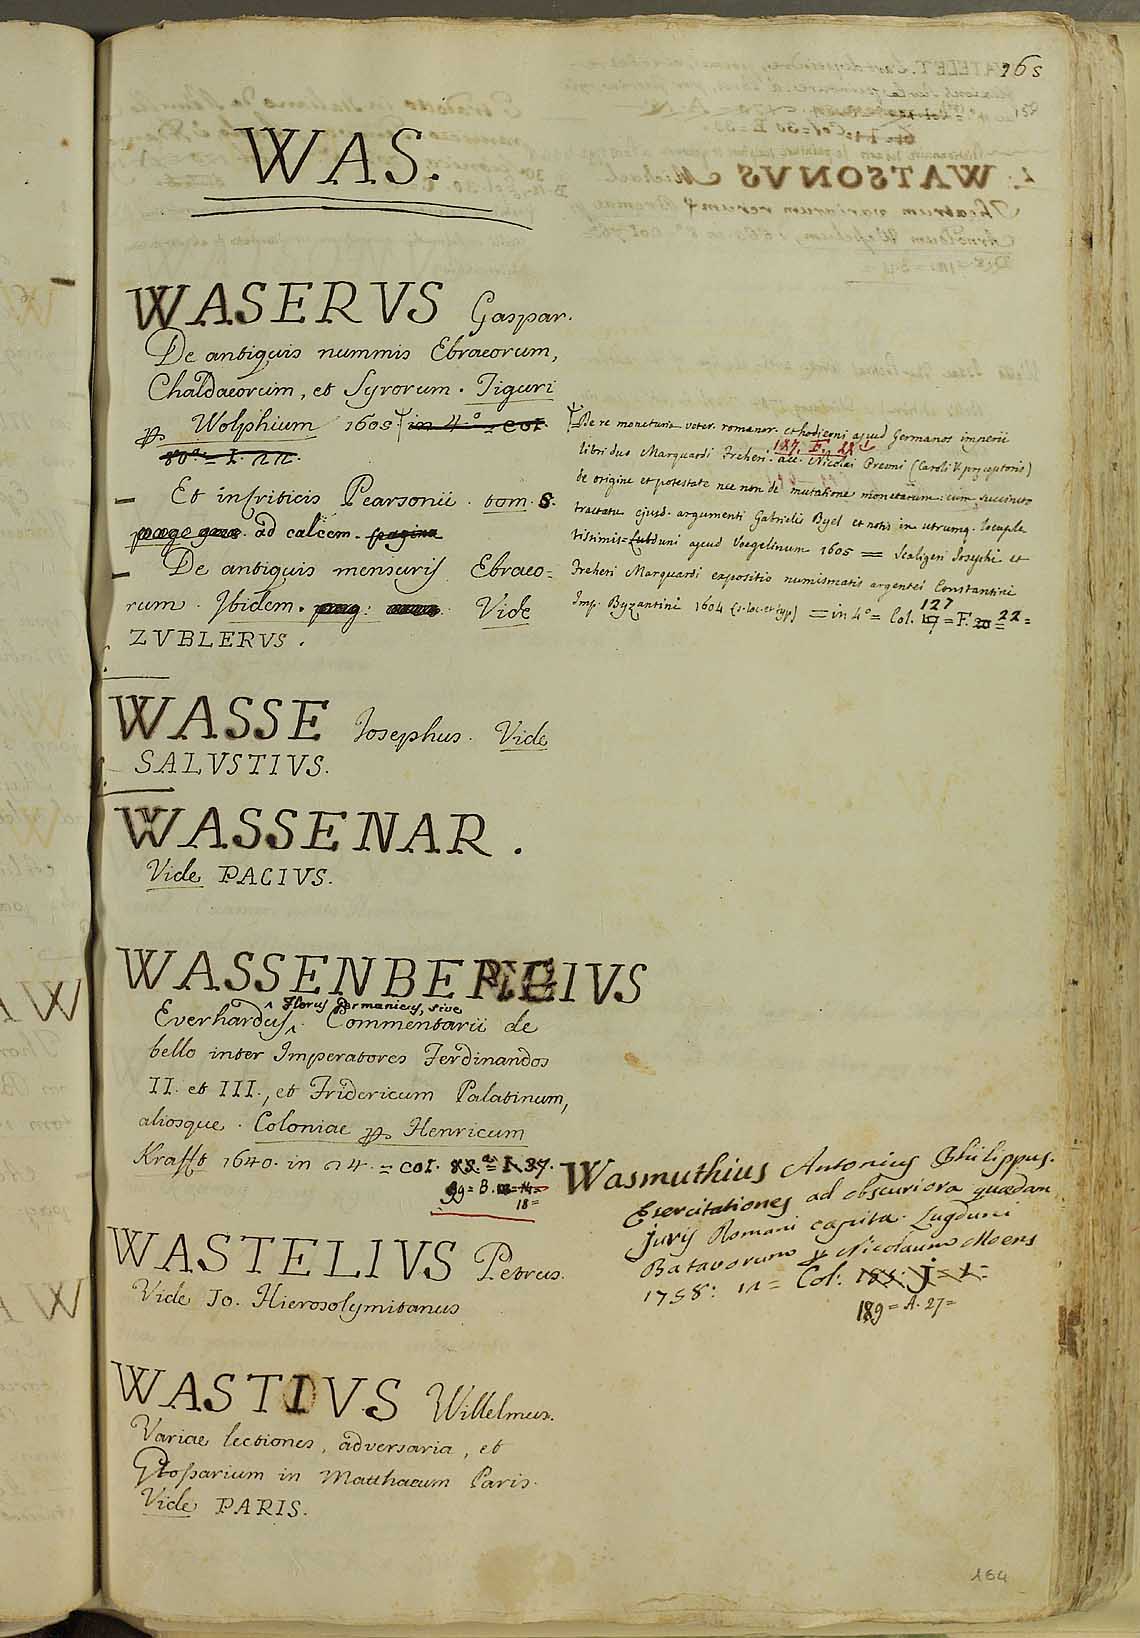 165
WAS.
WASERVS Gaspar.
De antiquis nummis Ebraeorum,
Chaldaeorum, et Syrorum. Tiguri
pp. Wolphium 1605 in 4.º = Col.
Et in Criticis Pearsonii. tom. 8.
ad calcem. pagina
De antiquis mensuris Ebraeo=
rum. Ibidem. pag: Vide
ZVBLERVS.
De re monetaria veter. romanor. et hodierni apud Germanos imperii
187. F. 22
libri duo Marquardi Freheri: acc. Nicolai (Caroli V. præceptoris)
de origine et potestate nec non de mutatione monetarum: cum succincto
tractatu ejusd. argumenti Gabrielis Byel et notis in utrumq. locuple
tissimis = Lubduni apud Voegelinum 1605 = Scaligeri Josephi et
Freheri Marquardi expositio numismatis argentei Constantini
Imp. Byzantini 1604 (s. loc. et typ) = in 4º = Col. 127 = F. 22 =
WASSE Josephus. Vide
SALVSTIVS.
WASSENAR.
Vide PACIVS.
WASSENBERGIVS
Florus Germanicus, sive
Everhardus. Commentarii de
bello inter Imperatores Ferdinandos
II. et III., et Fridericum Palatinum,
aliosque. Coloniae pp. Henricum
Krafft 1640. in 24. = Col. 83. = I. 37.
89 = B.
18 =
Wasmuthius Antonius Philippus.
Exercitationes ad obscuriora quædam
juris Romani capita. Lugduni
Batavorum pp. Nicolaum Moens
1758: 12 = Col:
189 = A. 27 =
WASTELIVS Petrus.
Vide Jo. Hierosolymitanus
WASTIVS Willelmus.
Variae lectiones, adversaria, et
Glossarium in Matthaeum Paris.
Vide PARIS.
164